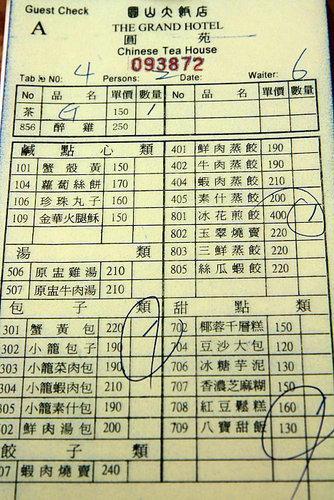 Guest Check
圓山大飯店
A
THE GRAND HOTEL
圓苑
Chinese Tea House
093872
Table NO: 4 Persons: 2 Date: Waiter: 6
No 品名 單價 數量 No 品名 單價 數量
茶 150 1
856 醉雞 250
鹹點心類
101 蟹殼黃 150
104 蘿蔔絲餅 170
106 珍珠丸子 160
109 金華火腿酥 150
湯類
506 原盅雞湯 210
507 原盅牛肉湯 210
包子類
301 蟹黃包 220
302 小龍包子 190
303 小龍菜肉包 190
304 小龍蝦肉包 210
305 小龍素什包 190
702 鮮肉湯包 200
餃子類
07 蝦肉燒賣 240
401 鮮肉蒸餃 190
402 牛肉蒸餃 190
404 蝦肉蒸餃 210
405 素什蒸餃 200
801 冰花煎餃 400
802 玉翠燒賣 220
803 三鮮蒸餃 220
805 絲瓜蝦餃 220
甜點類
702 椰蓉千層糕 150
704 豆沙大包 120
706 冰糖芋泥 130
707 香濃芝麻糊 150
708 紅豆鬆糕 160
709 八寶甜飯 130